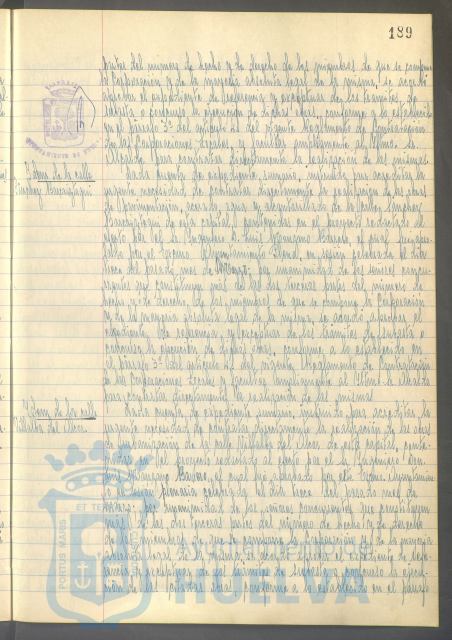 189
partes del número de hecho y de derecho de los miembros de que se compone
la Corporación y de la mayoría absoluta legal de la misma, se acordó
aprobar el expediente de referencia y exceptuar de los trámites de
subasta o concurso la ejecución de dichas obras, conforme a lo establecido
en el párrafo 3º del artículo 41 del vigente Reglamento de Contratación
de las Corporaciones Locales y facultar ampliamente al Iltmo. Sr.
Alcalde para contratar directamente la realización de las mismas.
Urbon. de la calle
Sánchez Barcaiztegui
Dada cuenta de expediente sumario, instruido para acreditar la
urgente necesidad de contratar directamente la realización de las obras
de pavimentación, acerado, agua y alcantarillado de la calle Sánchez
Barcaiztegui de esta capital, contenidas en el proyecto redactado al
efecto por el Sr. Ingeniero D. Luis Manzano, el cual fue apro-
bado por el Excmo. Ayuntamiento Pleno, en sesión celebrada el día
trece del pasado mes de Marzo; por unanimidad de los señores concu-
rrentes que constituyen más de las dos terceras partes del número de
hecho y de derecho de los miembros de que se compone la Corporación
y de la mayoría absoluta legal de la misma, se acordó aprobar el
expediente de referencia, y exceptuar de los trámites de subasta o
concurso la ejecución de dichas obras, conforme a lo establecido en
el párrafo 3º del artículo 41 del vigente Reglamento de Contratación
de las Corporaciones Locales y facultar ampliamente al Iltmo. Sr. Alcalde
para contratar directamente la realización de las mismas.
Urbon. de la calle
Villalba del Alcor.
Dada cuenta de expediente sumario, instruido para acreditar la
urgente necesidad de contratar directamente la realización de las obras
de urbanización de la calle Villalba del Alcor de esta capital, conte-
nidas en el proyecto redactado al efecto por el Sr. Ingeniero Don
Manzano, el cual fue aprobado por el Excmo. Ayuntamien-
to en sesión plenaria celebrada el día trece del pasado mes de
Marzo; por unanimidad de los señores concurrentes que constituyen
más de las dos terceras partes del número de hecho y de derecho
de los miembros de que se compone la Corporación y de la mayoría
absoluta legal de la misma, se acordó aprobar el expediente de refe-
rencia y exceptuar de los trámites de subasta o concurso la ejecu-
ción de las citadas obras, conforme a lo establecido en el párrafo
PORTUS MARIS ET TERRAE
HUELVA